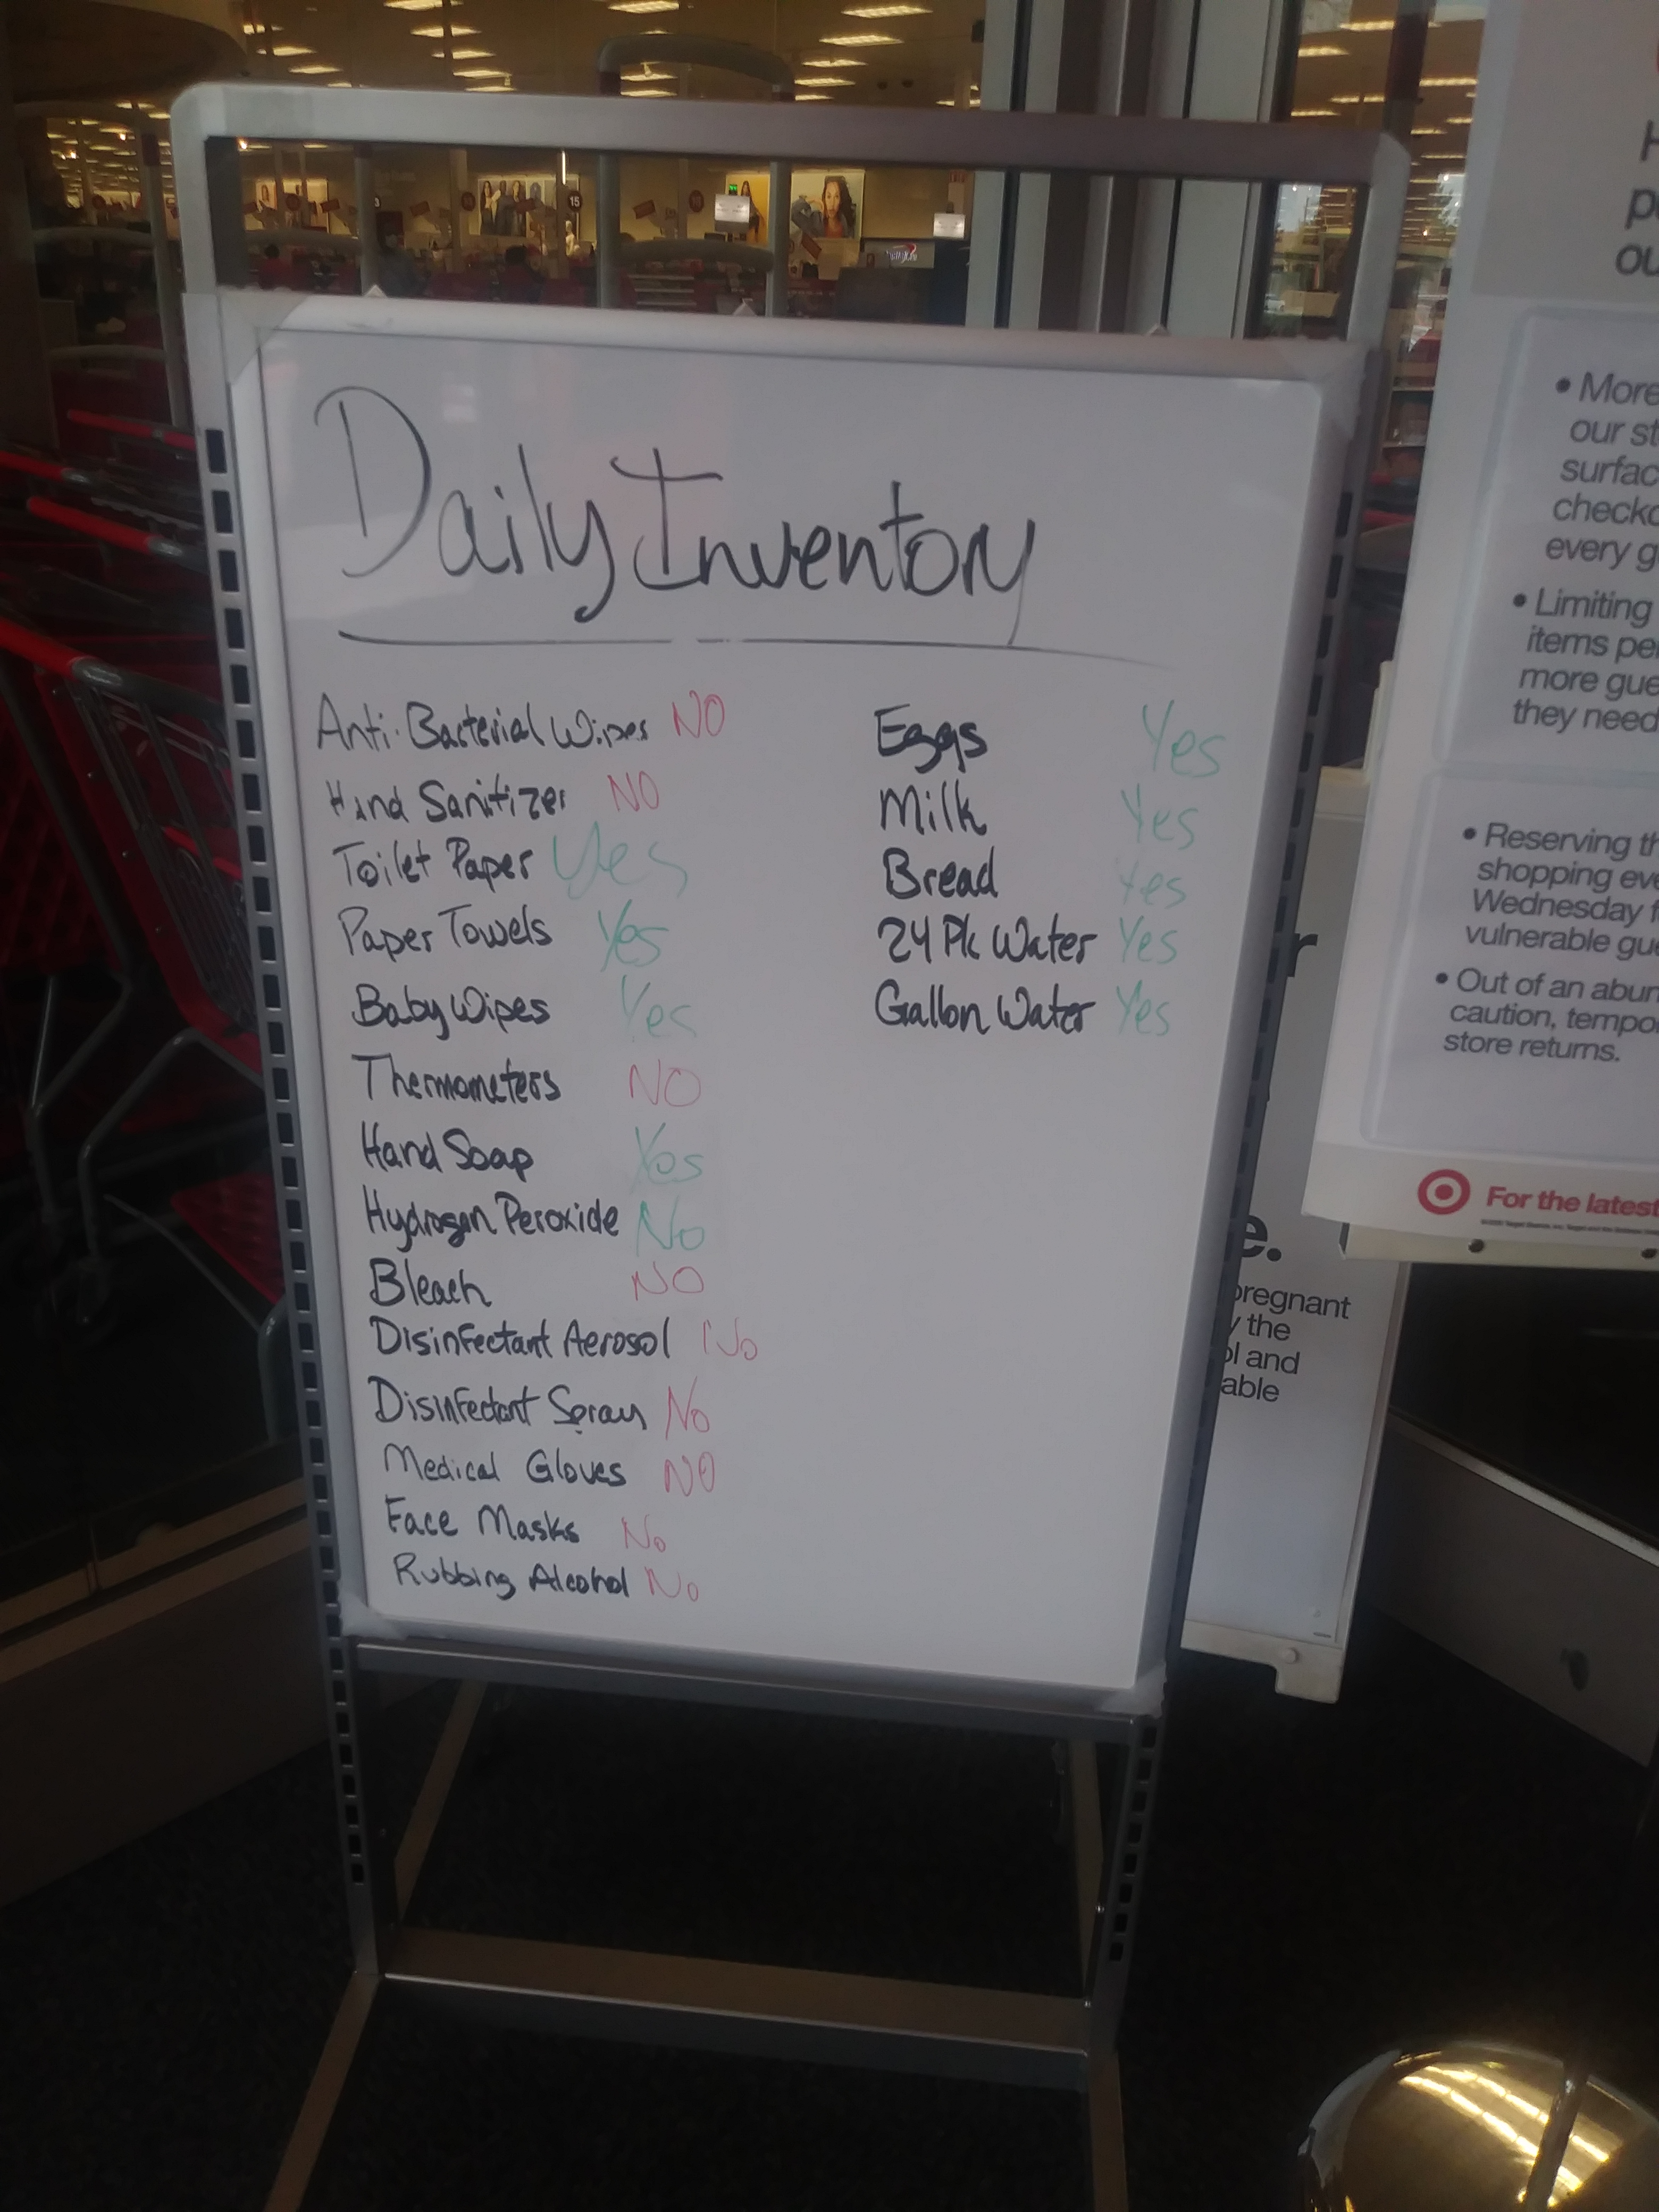 Daily Inventory
Anti-Bacterial Wipes NO
Hand Sanitizer NO
Toilet Paper Yes
Paper Towels Yes
Baby Wipes Yes
Thermometers NO
Hand Soap Yes
Hydrogen Peroxide No
Bleach NO
Disinfectant Aerosol No
Disinfectant Spray No
Medical Gloves NO
Face Masks No
Rubbing Alcohol No
Eggs Yes
Milk Yes
Bread Yes
24 Pk Water Yes
Gallon Water Yes
• More
our
every
• Limiting
items
more
they need
• Reserving
shopping
Wednesday
vulnerable
• Out of an
caution,
store returns.
For the latest
e.
pregnant
the
and
able
15